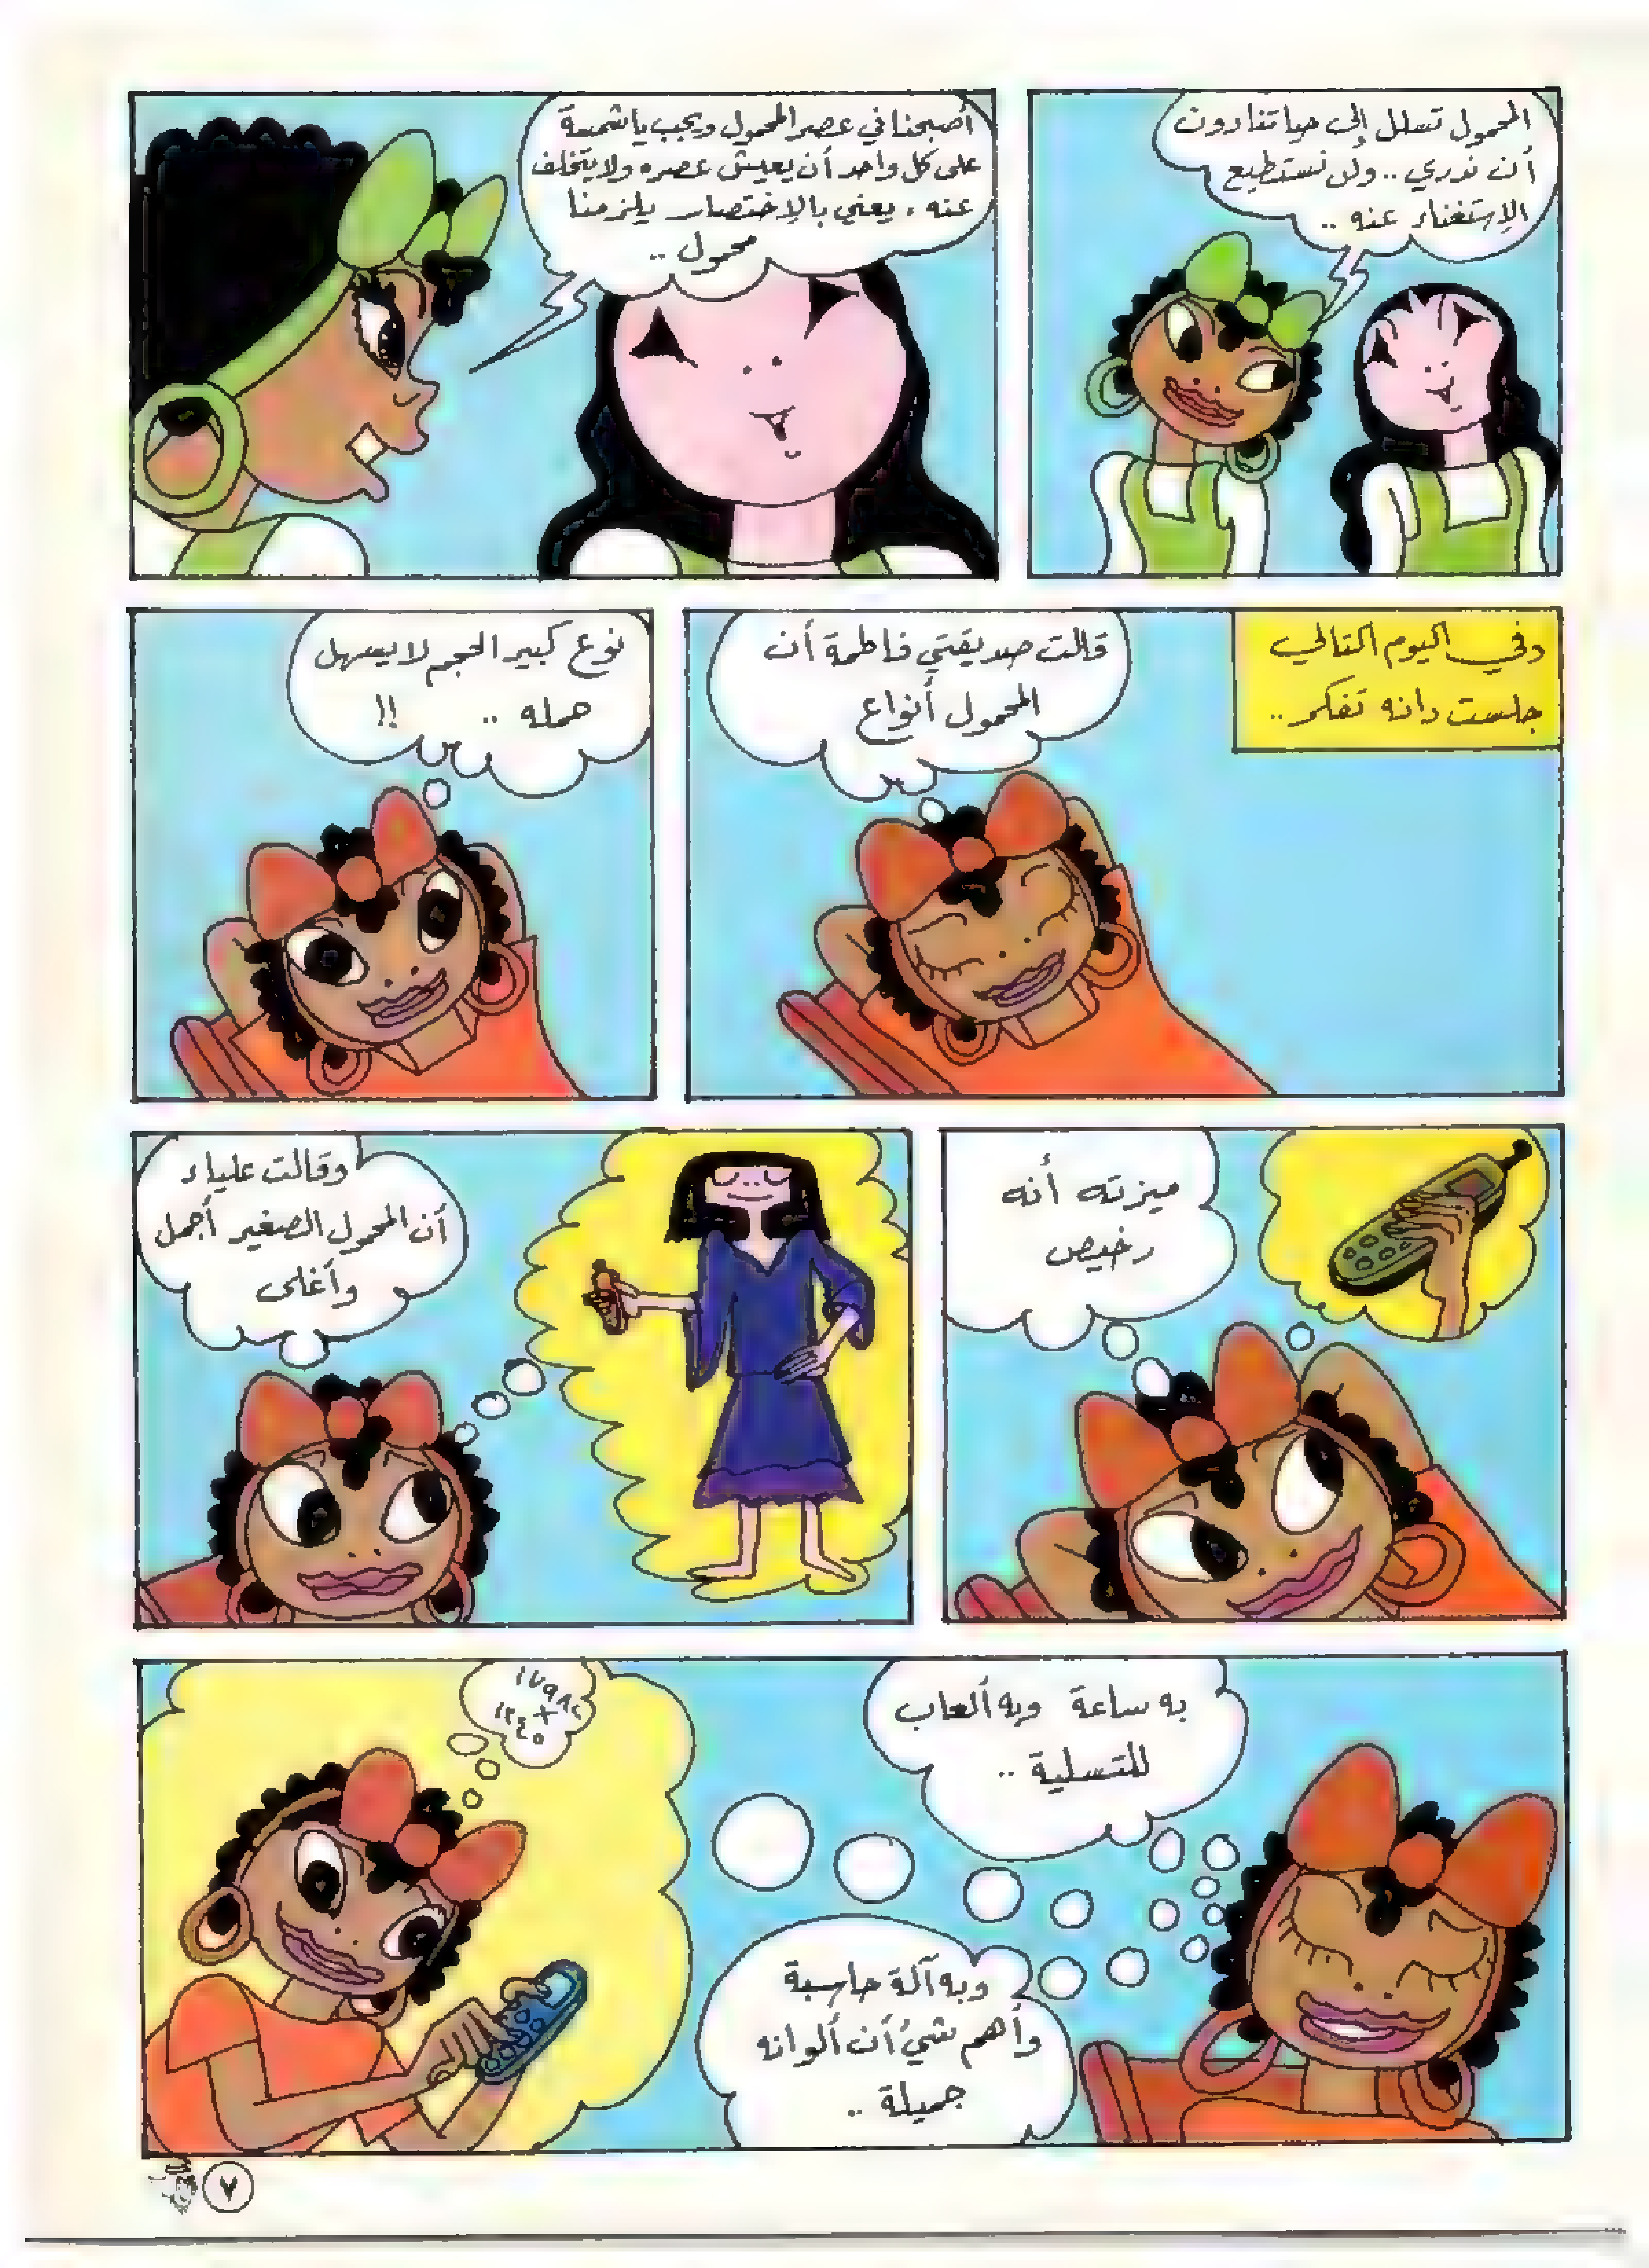 المحمول تسلل إلى حياتنا دون
أن ندري .. ولن نستطيع
الإستغناء عنه ..
أصبحنا في عصر المحمول ويجب يا شميعة
على كل واحد أن يعيش عصره ولا يتخلف
عنه ، يعني بالإختصار يلزمنا
محمول ..
وفي اليوم التالي
جلست دانه تفكر ..
قالت صديقتي فاطمة أن
المحمول أنواع
نوع كبير الحجم لا يسهل
حمله .. !!
ميزته أنه
رخيص
وقالت علياء
أن المحمول الصغير أجمل
وأغلى
به ساعة وبه ألعاب
للتسلية ..
وبه آلة حاسبة
وأهم شيء أن ألوانه
جميلة ..
١٧٩٨٢
×
١٢٤٥
٧